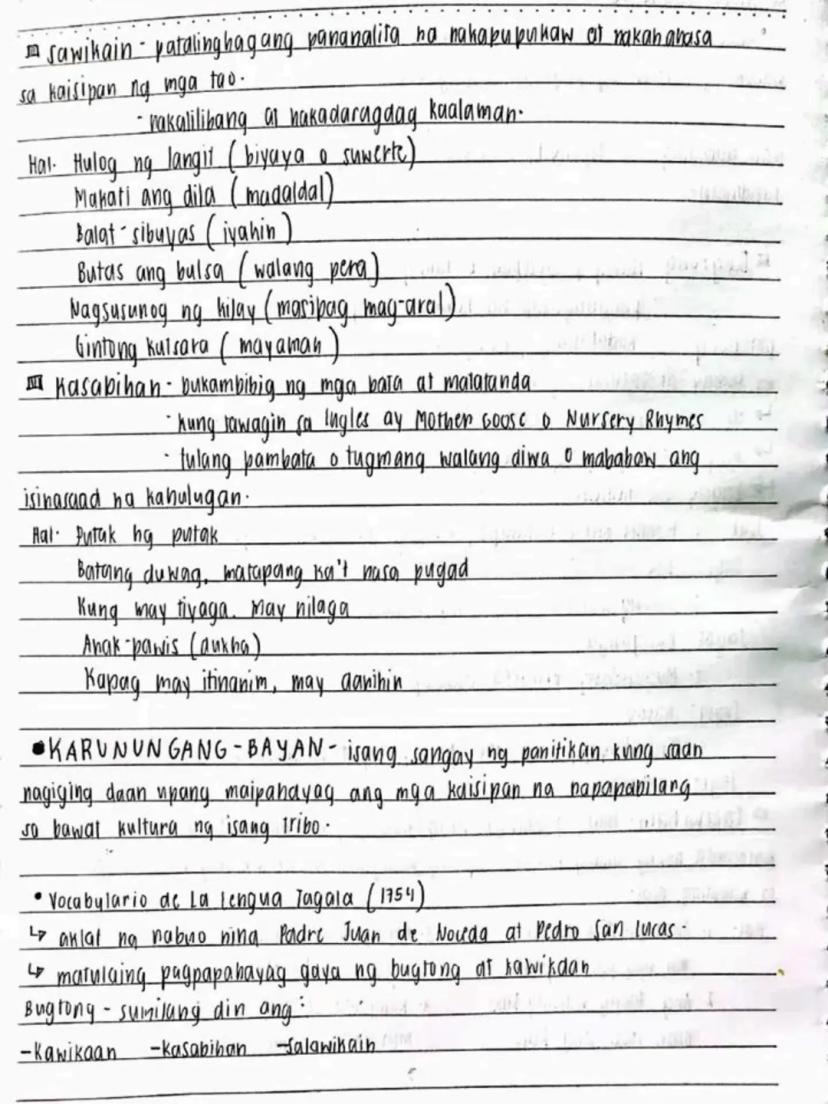 II Sawikain - patalinghagang pananalita na nakapupukaw at nakahahasa
sa kaisipan ng mga tao.
- nakalilibang at nakadaragdag kaalaman.
Hal. Hulog ng langit (biyaya o suwerte)
Makati ang dila (madaldal)
Balat-sibuyas (iyahin)
Butas ang bulsa (walang pera)
Nagsusunog ng kilay (masipag mag-aral)
Gintong kutsara (mayaman)
III Kasabihan - bukambibig ng mga bata at matatanda
- kung tawagin sa Ingles ay Mother Goose o Nursery Rhymes
- tulang pambata o tugmang walang diwa o mababaw ang
isinasaad na kahulugan.
Hal. Putak ng putak
Batang duwag, matapang ka't nasa pugad
Kung may tiyaga. May nilaga
Anak-pawis (dukha)
Kapag may itinanim, may aanihin
• KARUNUNGANG-BAYAN - isang sangay ng panitikan, kung saan
nagiging daan upang maipahayag ang mga kaisipan na napapabilang
sa bawat kultura ng isang tribo.
• Vocabulario de La Lengua Tagala (1754)
↳ aklat na nabuo nina Padre Juan de Noceda at Pedro San lucas.
↳ matulaing pagpapahayag gaya ng bugtong at kawikaan
Bugtong - sumilang din ang:
-Kawikaan -kasabihan -salawikain